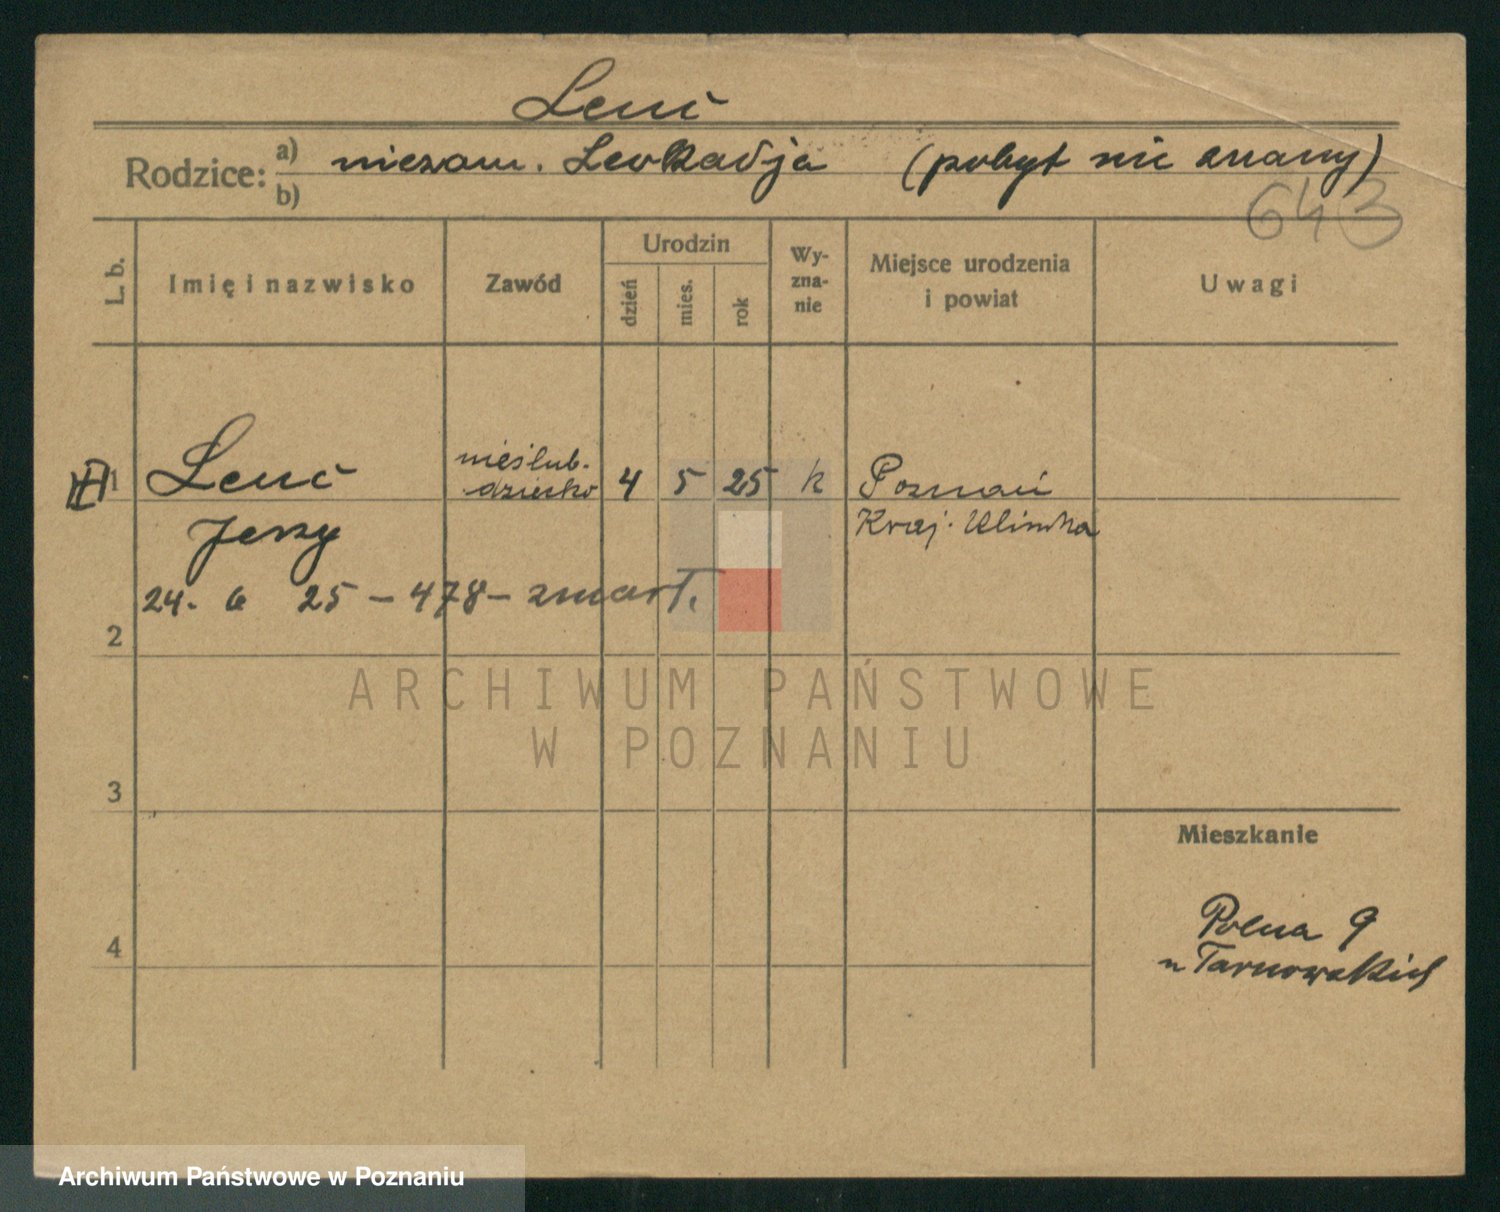 Lenč
Rodzice: a) niezam. Leokadja (pobyt nie znany)
b)
643
L. b. Imię i nazwisko Zawód Urodzin dzień mies. rok Wyznanie Miejsce urodzenia i powiat Uwagi
1 Lenč nieślub. dziecko 4 5 25 k Poznań
Jerzy Kraj. Klinika
24. 6 25 – 478 – zmarł.
2
ARCHIWUM PAŃSTWOWE
W POZNANIU
3
Mieszkanie
Polna 9
4
u Tarnowskich
Archiwum Państwowe w Poznaniu